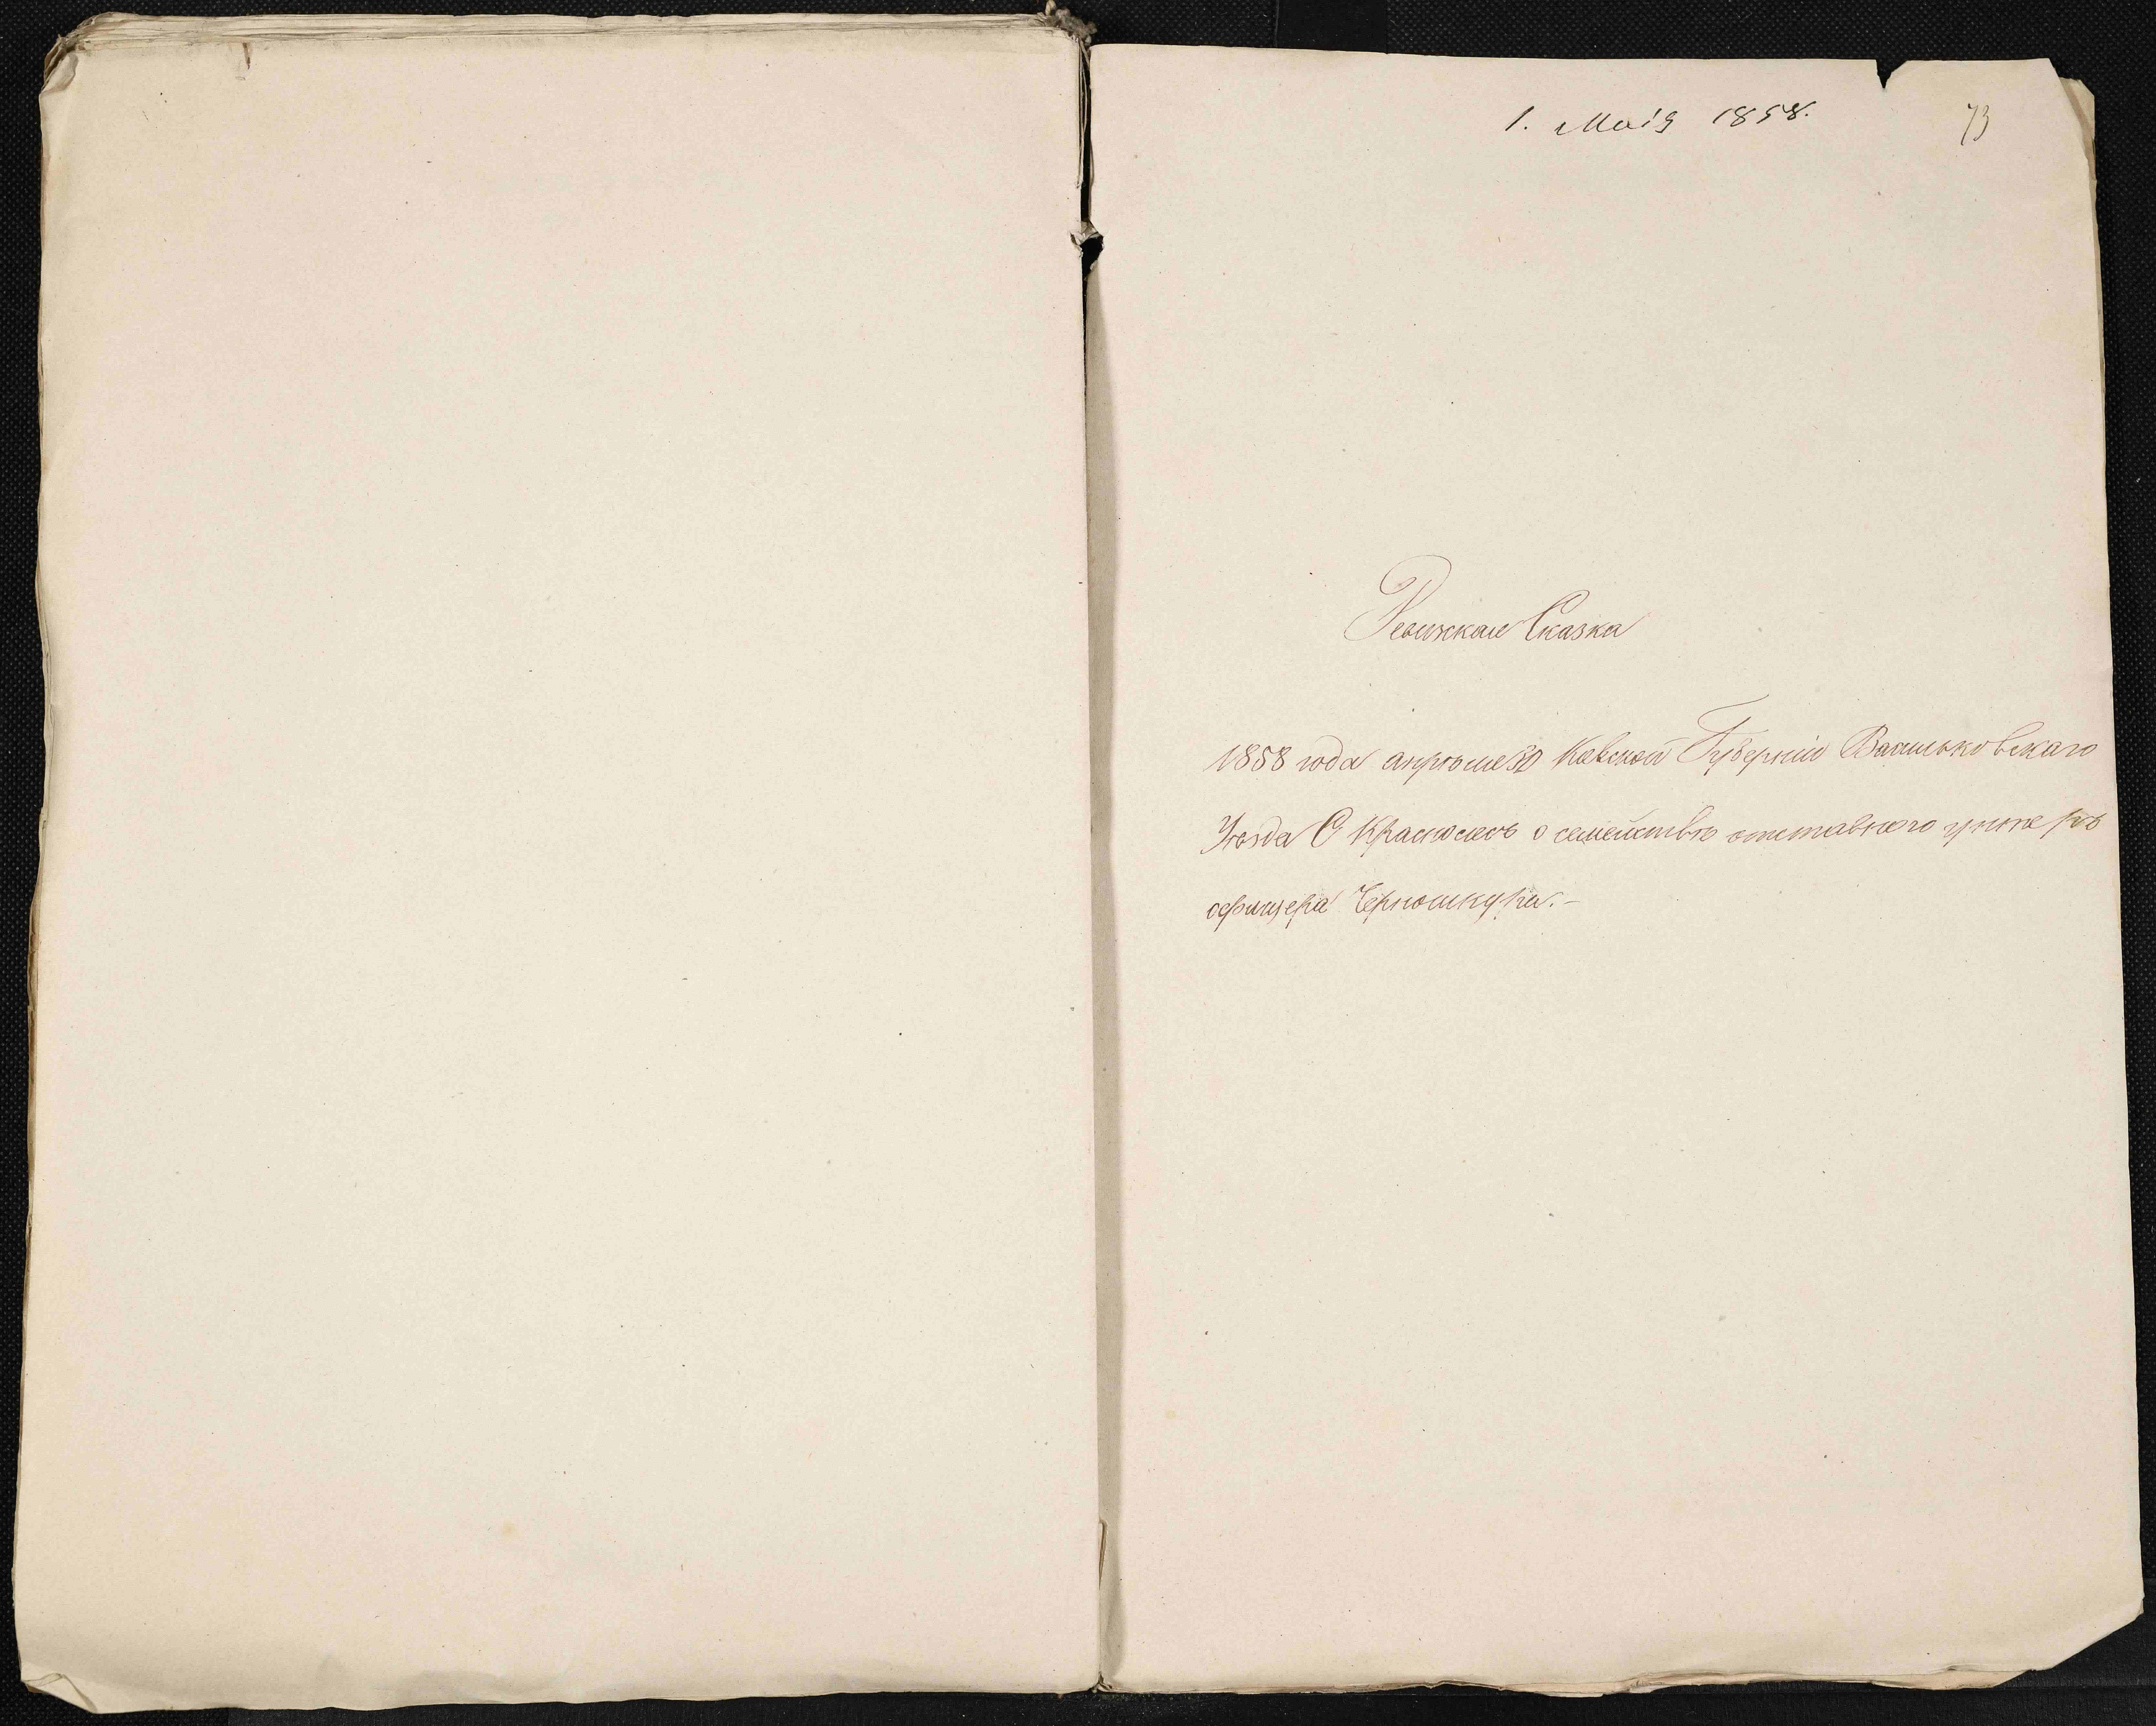 1. Маія 1858.
73
Ревижкая Сказка
1858 года апрѣля 30 Кіевской Губерніи Васильковскаго
Уѣзда С Краснолесъ о семействѣ отставного унтеръ
офицера Черношкура.-